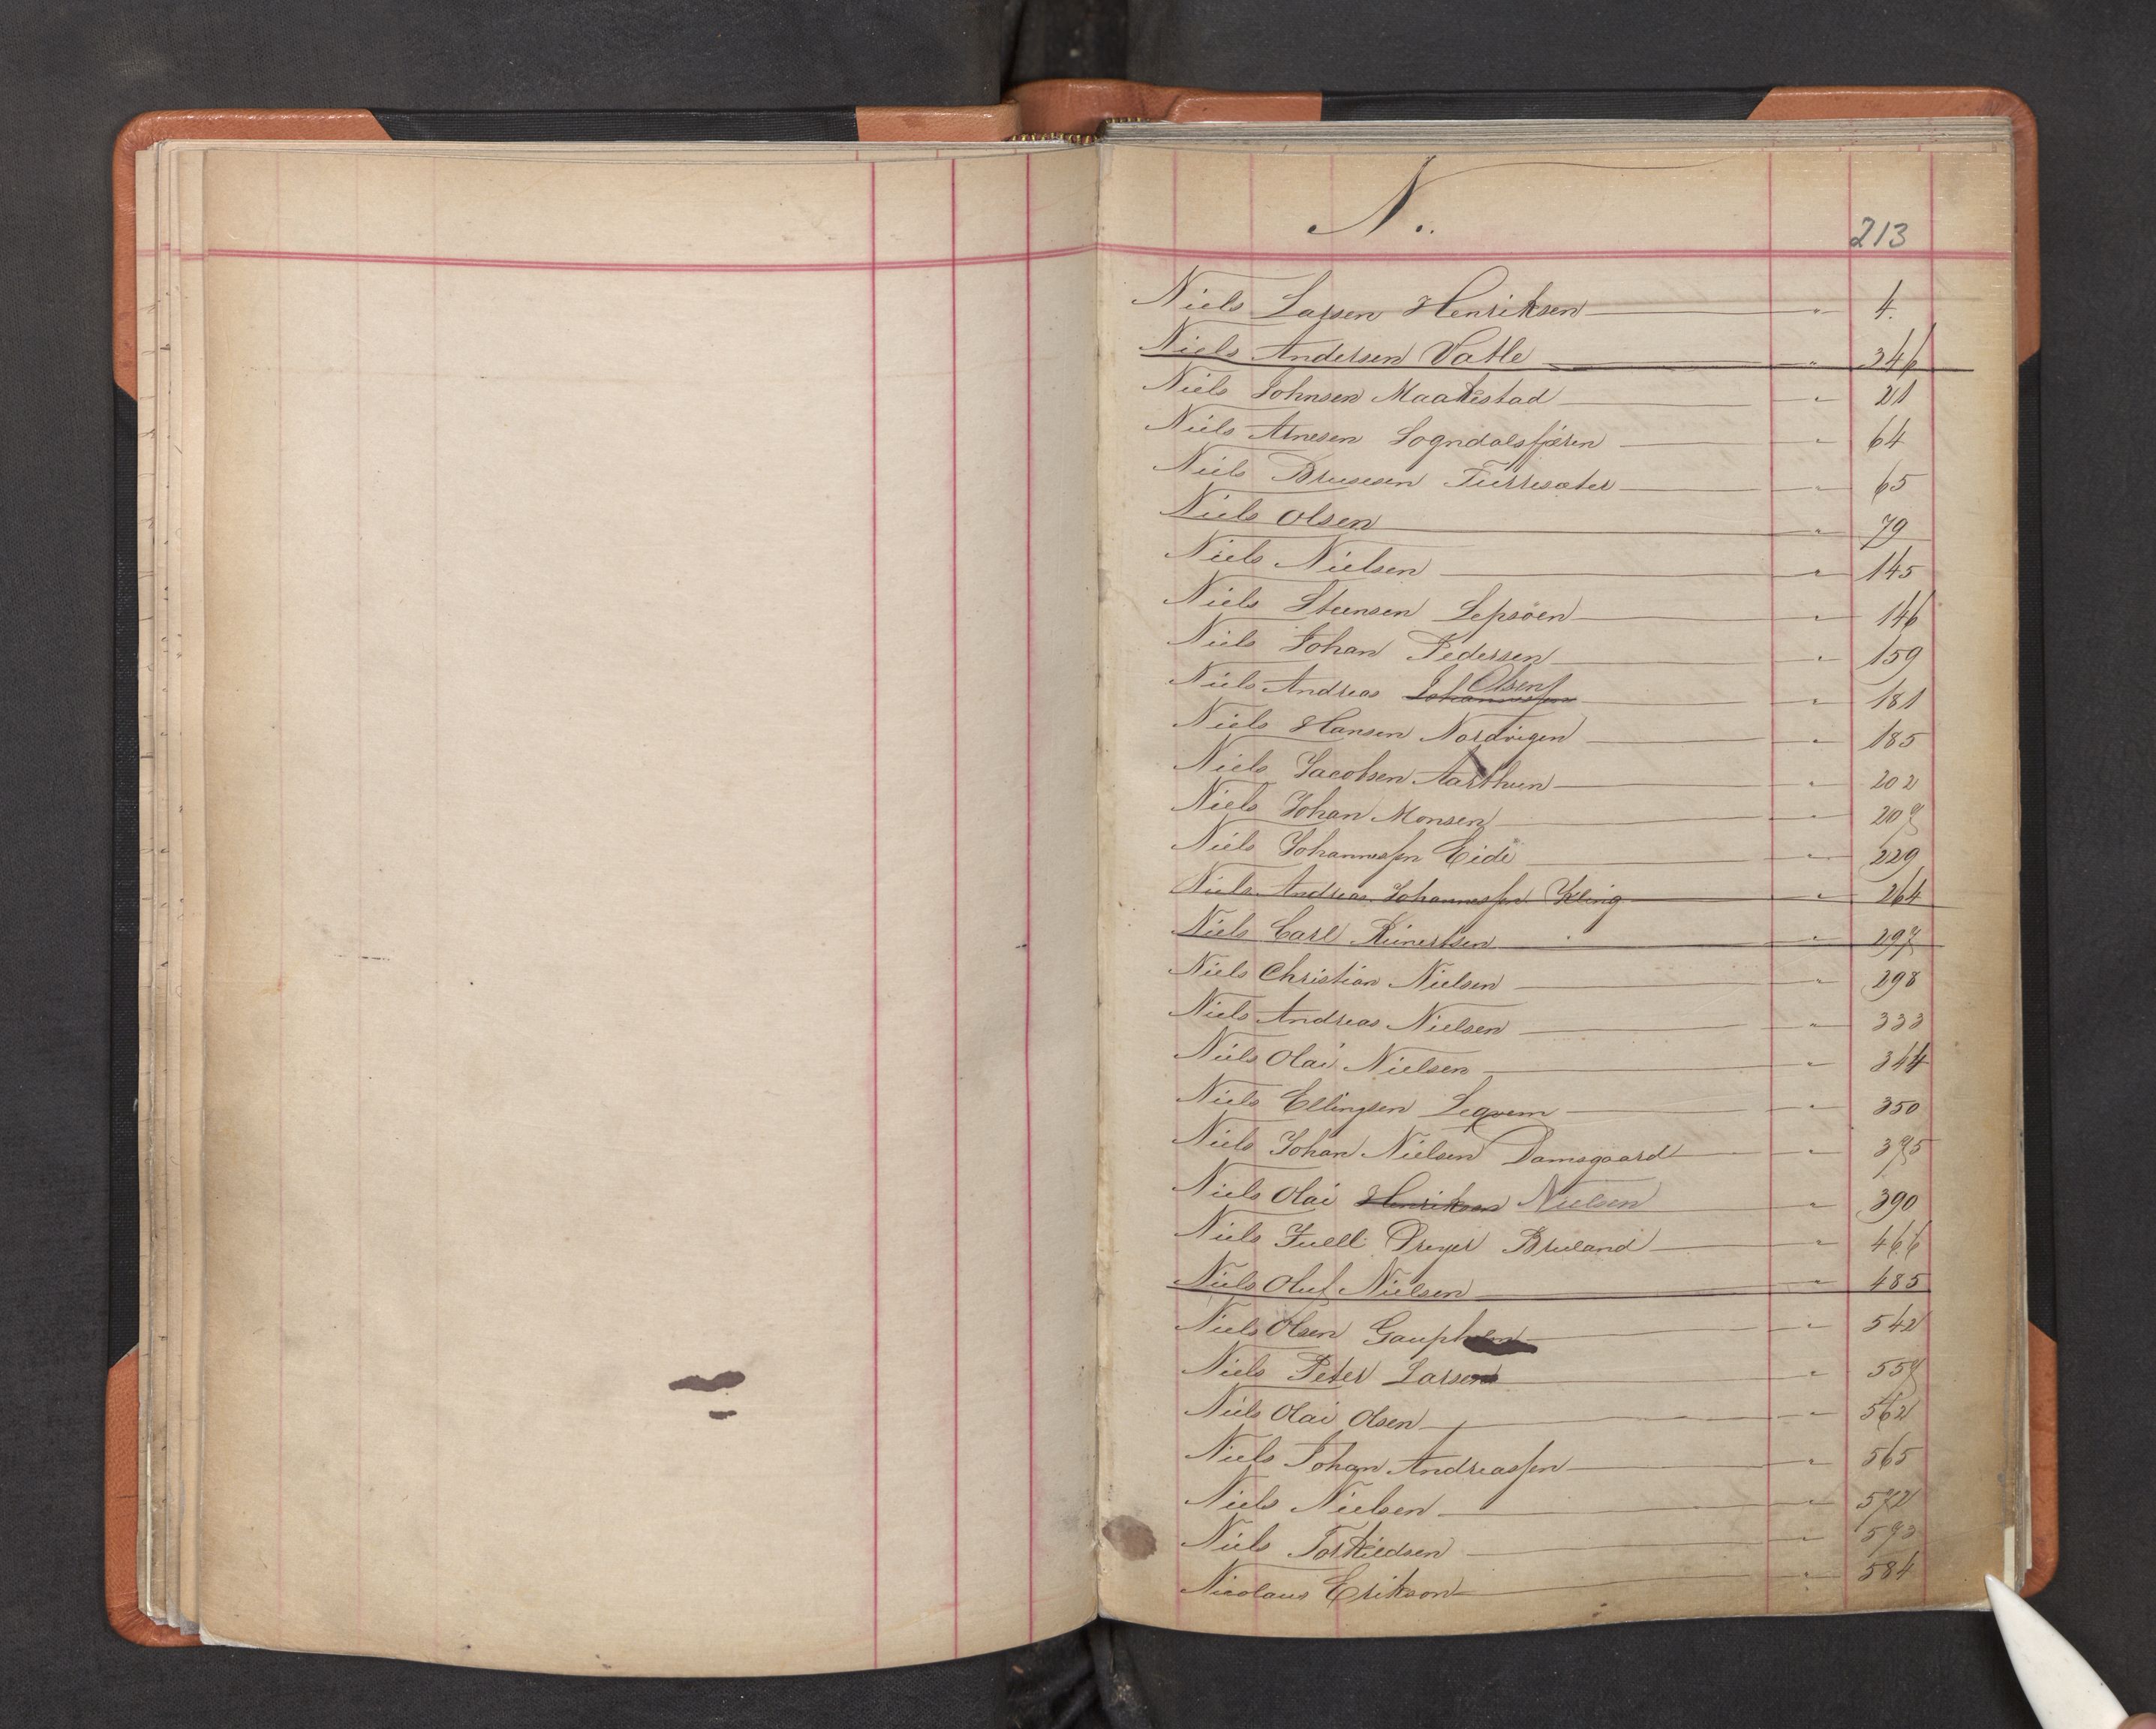 N.
213
Niels Larsen Henriksen " 4.
Niels Andersen Vatle " 346
Niels Johnsen Maakestad " 21
Niels Arnesen Sogndalsfjæren " 64
Niels Brusesen Furresæter " 65
Niels Olsen " 79
Niels Nielsen " 145
Niels Steensen Lepsøen " 146
Niels Johan Pedersen " 159
Niels Andreas Johannessen Olsen " 181
Niels Hansen Nordvigen " 185
Niels Jacobsen Aarthun " 202
Niels Johan Monsen " 207
Niels Johannessen Eide " 229
Niels Andreas Johannessen " 264
Niels Carl Reinertsen " 297
Niels Christian Nielsen " 298
Niels Andreas Nielsen " 333
Niels Olai Nielsen " 344
Niels Ellingsen Leqvem " 350
Niels Johan Nielsen Damsgaard " 375
Niels Olai Henriksen Nielsen " 390
Niels Juell Dreyer Bruland " 466
Niels Oluf Nielsen " 485
Niels Olsen " 542
Niels Peter Larsen " 557
Niels Olai Olsen " 562
Niels Johan Andreassen " 565
Niels Nielsen " 572
Niels Torkildsen " 573
Nicolaus Erikson " 584